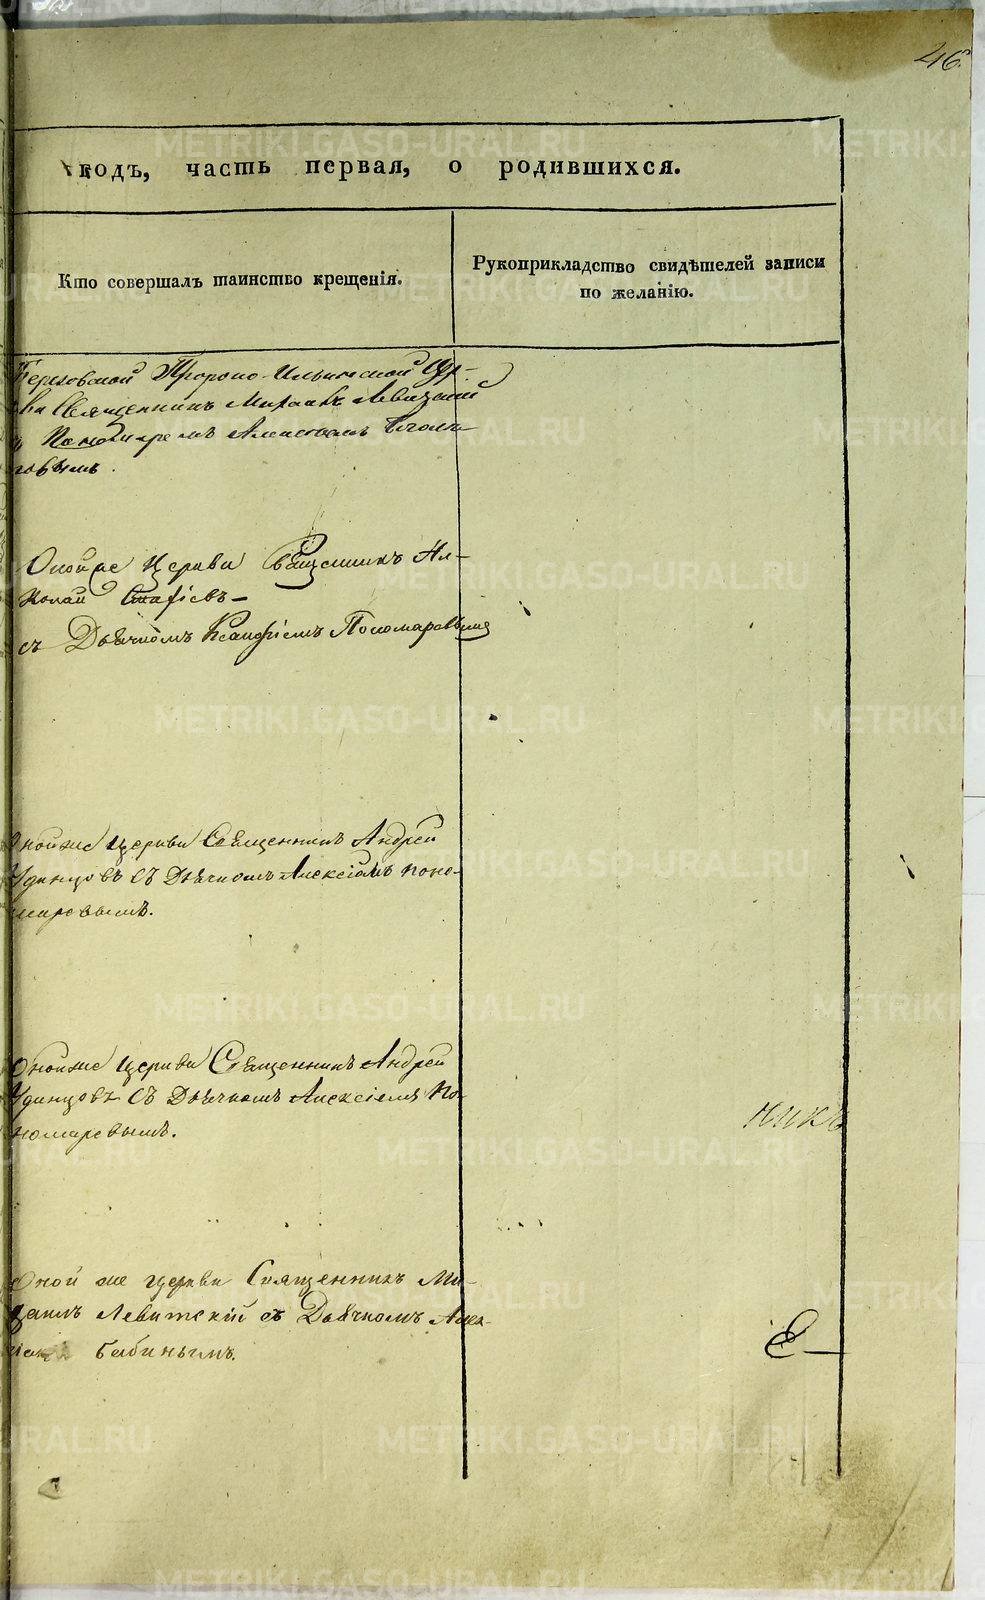 46.
годъ, часть первая, о родившихся.
Кто совершалъ таинство крещенія.
Рукоприкладство свидѣтелей записи
по желанію.
Пророко-Ильинской Цер-
кви Священникъ Михаилъ Левицкій
и Пономаремъ
Оной же Церкви Священникъ Ни-
колай
съ Дьячкомъ Ксенофонтомъ Пономаревымъ
Оной же Церкви Священникъ Андрей
Удинцовъ съ Дьячкомъ Алексіемъ Поно-
маревымъ.
Оной же Церкви Священникъ Андрей
Удинцовъ съ Дьячкомъ Алексіемъ По-
номаревымъ.
никъ
Оной же Церкви Священникъ Ми-
хаилъ Левитскій съ Дьячкомъ Алек-
Бабинымъ.
METRIKI.GASO-URAL.RU